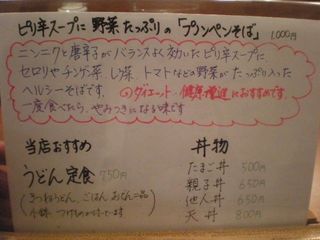 ピリ辛スープに 野菜たっぷりの「プノンペンそば」 1,000円
ニンニクと唐辛子がバランスよく効いたピリ辛スープに
セロリやチンゲン菜、レタス、トマトなどの野菜がたっぷり入った
ヘルシーそばです。 ダイエット・健康増進におすすめです。
一度食べたら、やみつきになる味です
当店おすすめ
うどん定食 750円
(きつねうどん、ごはん おかず一品
小鉢 つけものがつきます)
丼物
たまご丼 500円
親子丼 650円
他人丼 650円
天丼 800円